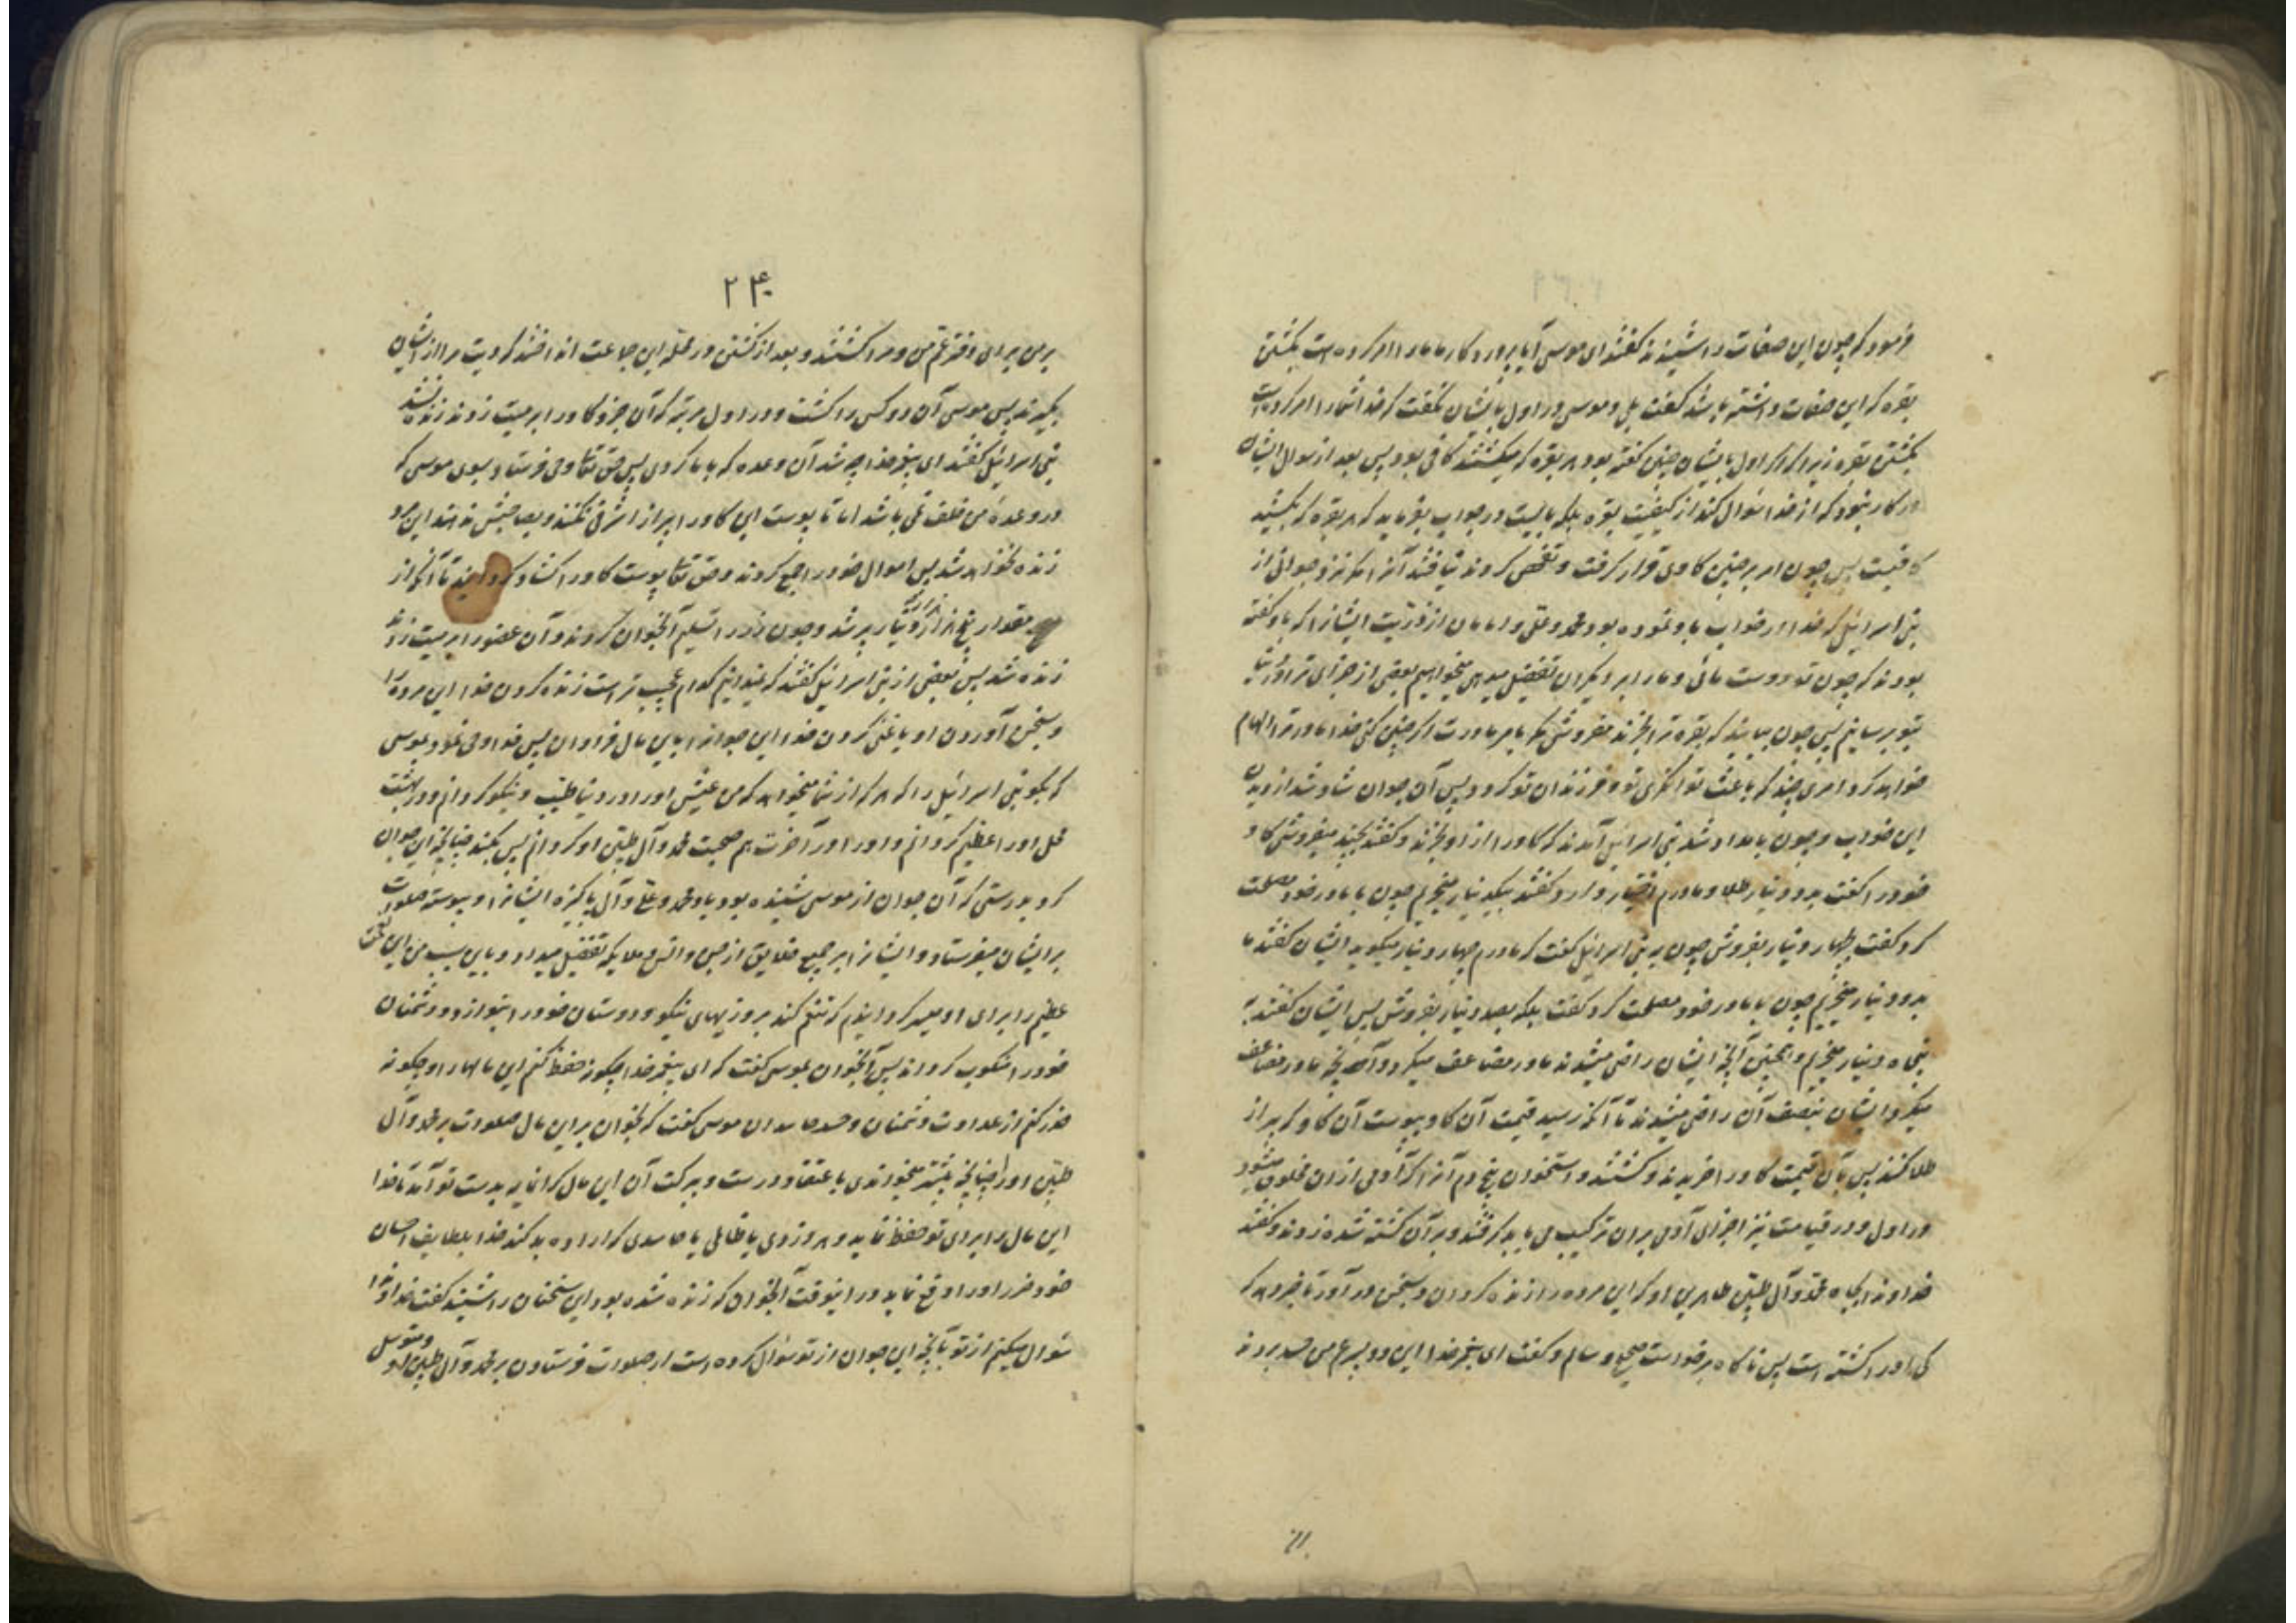 فرمود که چون این صفات را شنیدند گفتند ای موسی آیا پروردگار ما ما را امر کرده است بکشتن
بقره که این صفات داشته باشد گفت بلی و موسی در اول بایشان نگفت که خدا شما را امر کرده است
بکشتن بقره زیرا که اگر اول بایشان چنین گفته بود هر بقره که میکشتند کافی بود پس بعد از سوال ایشان
در کار نبود که از خدا سوال کند از کیفیت بقره بلکه بایست در جواب بفرماید که هر بقره که بکشید
کافیست پس چون امر بر چنین گاوی قرار گرفت و تفحص کردند نیافتند آنرا مگر نزد جوانی از
بنی اسرائیل که خدا در خواب باو نموده بود محمد و علی و امامان از ذریت ایشانرا که باو گفته
بودند که چون تو دوست مائی و ما را بر دیگران تفضیل میدهی میخواهیم بعضی از جزای ترا در دنیا
بتو برسانیم پس چون بیایند که بقره ترا بخرند مفروش مگر بامر مادرت اگر چنین کنی خدا مادر ترا الهام
خواهد کرد امری چند که باعث توانگری تو و فرزندان تو گردد پس آن جوان شاد شد از دیدن
این خواب و چون بامداد شد بنی اسرائیل آمدند که گاو را از او بخرند و گفتند بچند میفروشی گاو
خود را گفت بدو دینار طلا و مادرم اختیار دارد گفتند بیکدینار میخریم چون با مادر خود مصلحت
کرد گفت بچهار دینار بفروش چون به بنی اسرائیل گفت که مادرم چهار دینار میگوید ایشان گفتند ما
بدو دینار میخریم چون با مادر خود مصلحت کرد گفت بلکه بصد دینار بفروش پس ایشان گفتند به
پنجاه دینار میخریم و همچنین آنچه ایشان راضی میشدند مادر مضاعف میکرد و آنچه مادر مضاعف
میکرد ایشان بنصف آن راضی میشدند تا آنکه رسید قیمت آن گاو بپوست آن گاو که پر از
طلا کنند پس بآن قیمت گاو را خریدند و کشتند و استخوان بیخ دم آنرا که آدمی از ان مخلوق میشود
در اول و در قیامت نیز اجزای آدمی بران ترکیب می یابد گرفتند و بر آن کشته شده زدند و گفتند
خداوندا بجاه محمد و آل طیبین طاهرین او که این مرده را زنده گردان و بسخن در آور تا خبر دهد که
کی او را کشته است پس ناگاه برخواست صحیح و سالم و گفت ای پیغمبر خدا این دو پسر عم من حسد بردند
بر من
۲۴۰
بر من برای دختر عم من و مرا کشتند و بعد از کشتن در محله این جماعت انداختند که دیت مرا از ایشان
بگیرند پس موسی آن دو کس را کشت و در اول مرتبه که آن جزو گاو را بر میت زدند زنده نشد
بنی اسرائیل گفتند ای پیغمبر خدا چه شد آن وعده که با ما کردی پس حق تعالی وحی فرستاد بسوی موسی که
در وعده من خلف نمی باشد اما تا پوست این گاو را پر از اشرفی نکنند و بصاحبش ندهند این مرد
زنده نخواهد شد پس اموال خود را جمع کردند و حق تعالی پوست گاو را گشاد گردانید تا آنکه از
مقدار پنج هزار هزار دینار پر شد و چون زر را تسلیم آنجوان کردند و آن عضو را بر میت زدند
زنده شد پس بعضی از بنی اسرائیل گفتند که نمیدانیم کدام عجیب تر است زنده کردن خدا این مرده را
و بسخن آوردن او یا غنی کردن خدا این جوانرا باین مال فراوان پس خدا وحی نمود بموسی
که بگو بنی اسرائیل را که هر که از شما میخواهد که من عیش او را در دنیا طیب و نیکو گردانم و در بهشت
محل او را عظیم گردانم و او را در آخرت هم صحبت محمد و آل طیبین او گردانم پس بکند چنانچه این جوان
کرد بدرستی که آن جوان از موسی شنیده بود یاد محمد و علی و آل پاکیزه ایشانرا و پیوسته صلوات
بر ایشان میفرستاد و ایشانرا بر جمیع خلایق از جن و انس و ملایکه تفضیل میداد و باین سبب من این نعمت
عظیم را برای او میسر گردانیدم که تنعم کند بروزیهای نیکو و دوستان خود را بنوازد و دشمنان
خود را منکوب گرداند پس آنجوان بموسی گفت که ای پیغمبر خدا چگونه حفظ کنم این مالها را و چگونه
حذر کنم از عداوت دشمنان و حسد حاسدان موسی گفت که بخوان بر این مال صلوات بر محمد و آل
طیبین او را چنانچه پیشتر میخواندی با اعتقاد درست و ببرکت آن این مال گرانمایه بدست تو آمد تا خدا
این مال را برای تو حفظ نماید و هر دزدی یا ظالمی یا حاسدی که اراده بد کند خدا بلطایف احسان
خود ضرر او را دفع نماید در اینوقت آنجوان که زنده شده بود این سخنان را شنید گفت خداوندا
سوال میکنم از تو بآنچه این جوان از تو سوال کرده است از صلوات فرستادن بر محمد و آل طیبین او و متوسل